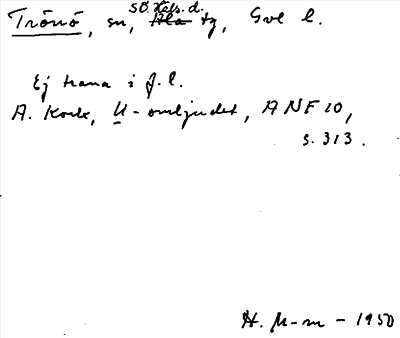 Trönö, sn, SÖ. Häls. d. tg, Gvl l.
Ej trana i f. l.
A. Kock, U-omljudet, ANF 10,
s. 313.
H. M-m - 1950